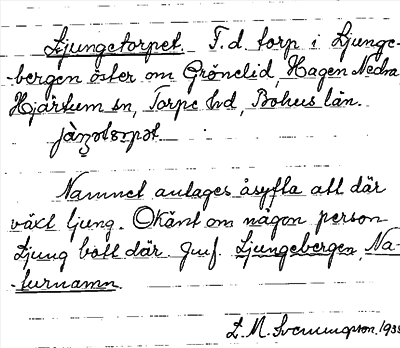 Ljungetorpet T.d. torp i Ljunge-
-bergen öster om Grönelid, Hagen Nedra
Hjärtum sn, Torpe hd, Bohus län.
Namnet antages åsyfta att där
växt ljung. Okänt om någon person
Ljung bott där. Jmf. Ljungebergen, Na-
-turnamn.
L. M. Svenungsson, 1938